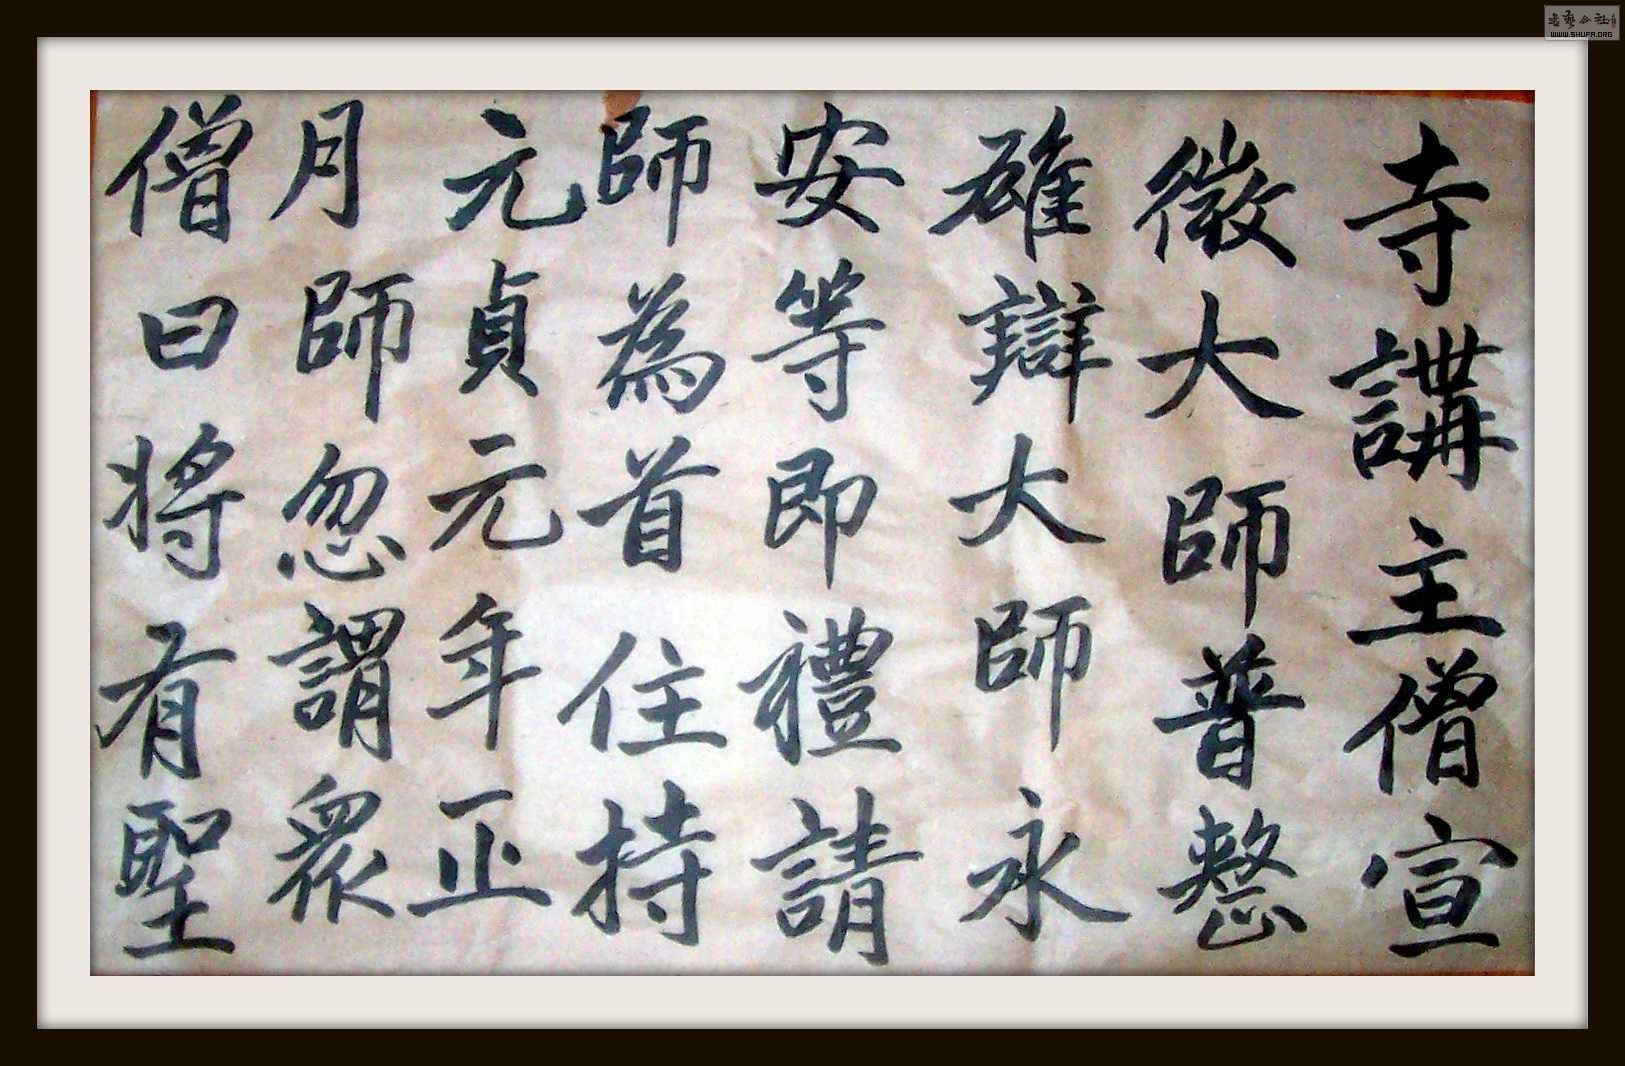 寺講主僧宣
徽大師普整
雄辯大師永
安等即禮請
師為首住持
元貞元年正
月師忽謂眾
僧曰將有聖
WWW.SHUFA.ORG